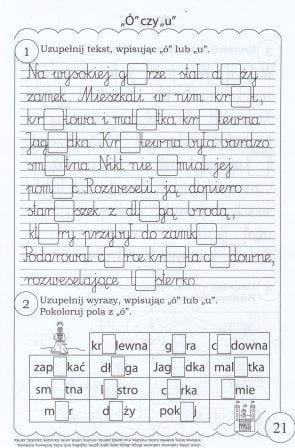 „Ó” czy „u”
1 Uzupełnij tekst, wpisując „ó” lub „u”.
Na wysokiej g□rze stał d□ży
zamek. Mieszkali w nim kr□l,
kr□lowa i mal□tka kr□lewna
Jag□dka. Kr□lewna była bardzo
sm□tna. Nikt nie □miał jej
pom□c. Rozweselił ją dopiero
star□szek z dł□gą brodą,
kt□ry przybył do zamk□.
Podarował c□rce kr□la c□downe,
rozweselające l□sterko.
2 Uzupełnij wyrazy, wpisując „ó” lub „u”.
Pokoloruj pola z „ó”.
kr□lewna g□ra c□downa
zap□kać dł□ga Jag□dka mal□tka
sm□tna l□stro c□rka □mie
m□r d□ży pok□j
21